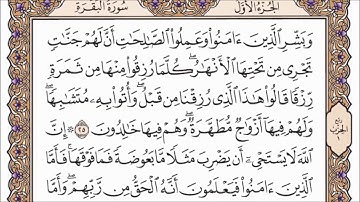 الجزء الأول
سورة البقرة
وَبَشِّرِ ٱلَّذِينَ ءَامَنُوا۟ وَعَمِلُوا۟ ٱلصَّٰلِحَٰتِ أَنَّ لَهُمْ جَنَّٰتٍ
تَجْرِى مِن تَحْتِهَا ٱلْأَنْهَٰرُ ۖ كُلَّمَا رُزِقُوا۟ مِنْهَا مِن ثَمَرَةٍ
رِّزْقًا ۙ قَالُوا۟ هَٰذَا ٱلَّذِى رُزِقْنَا مِن قَبْلُ ۖ وَأُتُوا۟ بِهِۦ مُتَشَٰبِهًا ۖ
وَلَهُمْ فِيهَآ أَزْوَٰجٌ مُّطَهَّرَةٌ ۖ وَهُمْ فِيهَا خَٰلِدُونَ ٢٥ ۞ إِنَّ
ٱللَّهَ لَا يَسْتَحْىِۦٓ أَن يَضْرِبَ مَثَلًا مَّا بَعُوضَةً فَمَا فَوْقَهَا ۚ فَأَمَّا
ٱلَّذِينَ ءَامَنُوا۟ فَيَعْلَمُونَ أَنَّهُ ٱلْحَقُّ مِن رَّبِّهِمْ ۖ وَأَمَّا
ربع
الحزب
١